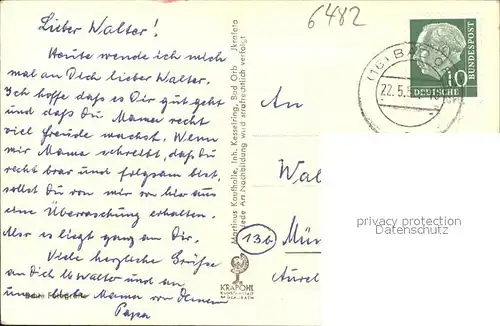 Lieber Walter!
Heute wende ich mich
mal an Dich lieber Walter.
Ich hoffe daß es Dir gut geht
und daß du Mama recht
viel Freude machst. Wenn
mir Mama schreibt, daß du
recht brav und folgsam bist,
sollst du von mir von hier aus
eine Überraschung erhalten.
Also es liegt ganz an Dir.
Viele herzliche Grüße
an Dich lb Walter und an
unsere liebe Mama von Deinem
Papa
Martinus Kaufhalle, Inh. Kesselring, Bad Orb
Jede Art Nachbildung wird strafrechtlich verfolgt
KRAPOHL
6482
An
Wal
13b
Mün
Aurel
(16) BAD O
22.5.5
10
DEUTSCHE
BUNDESPOST
privacy protection
Datenschutz